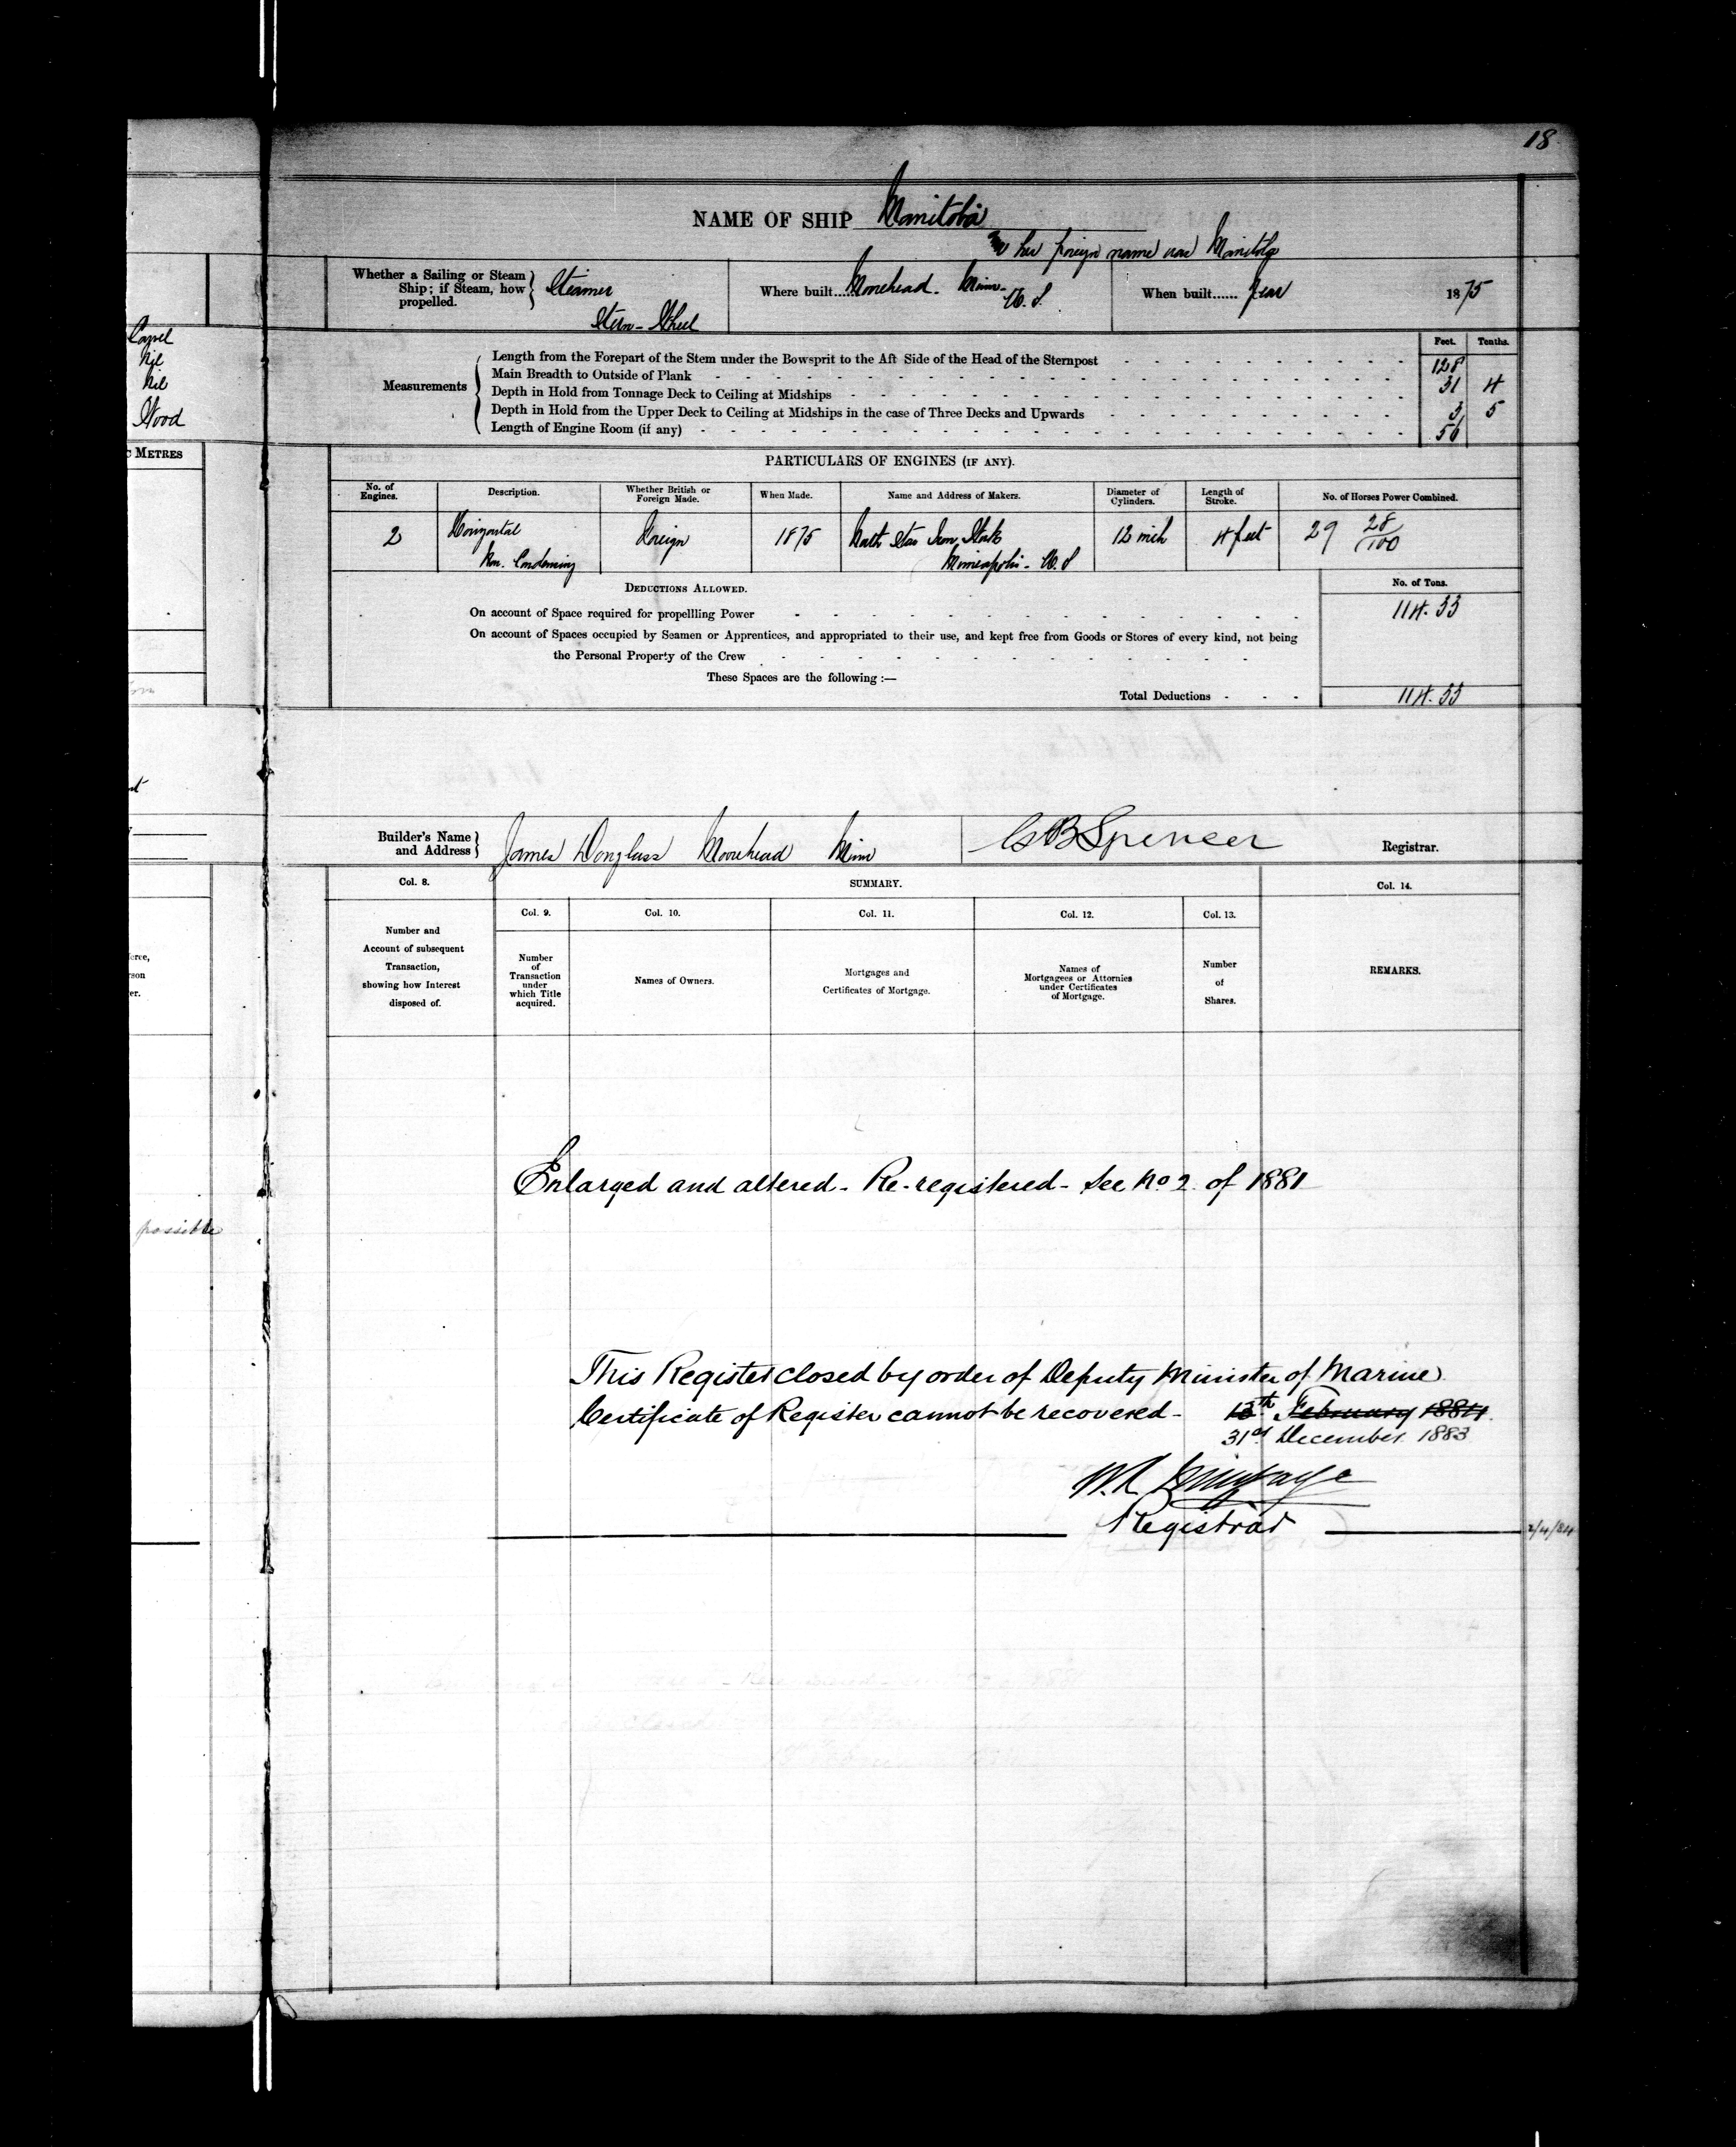 18
NAME OF SHIP Manitoba
her foreign name was Manitoba
Whether a Sailing or Steam Ship; if Steam, how propelled. } Steamer
Stern-Wheel
Where built...... Moorehead. Minn-
U. S.
When built...... Year 1875
Carvel
Nil
Nil
Wood
Measurements
Feet. Tenths.
Length from the Forepart of the Stem under the Bowsprit to the Aft Side of the Head of the Sternpost 128
Main Breadth to Outside of Plank 31 4
Depth in Hold from Tonnage Deck to Ceiling at Midships 3 5
Depth in Hold from the Upper Deck to Ceiling at Midships in the case of Three Decks and Upwards
Length of Engine Room (if any) 56
METRES
PARTICULARS OF ENGINES (IF ANY).
No. of Engines. Description. Whether British or Foreign Made. When Made. Name and Address of Makers. Diameter of Cylinders. Length of Stroke. No. of Horses Power Combined.
2 Horizontal Foreign 1875 North Star Iron Works 12 inch 4 feet 29 28/100
Non. Condensing Minneapolis- U. S
DEDUCTIONS ALLOWED. No. of Tons.
On account of Space required for propellling Power 114. 33
On account of Spaces occupied by Seamen or Apprentices, and appropriated to their use, and kept free from Goods or Stores of every kind, not being
the Personal Property of the Crew
These Spaces are the following :—
Total Deductions 114. 33
Builder's Name and Address } James Douglass Moorehead Minn
Spencer Registrar.
Col. 8. SUMMARY. Col. 14.
Col. 9. Col. 10. Col. 11. Col. 12. Col. 13.
Number and
Account of subsequent
Transaction,
showing how Interest
disposed of.
Number
of
Transaction
under
which Title
acquired.
Names of Owners.
Mortgages and
Certificates of Mortgage.
Names of
Mortgagees or Attornies
under Certificates
of Mortgage.
Number
of
Shares.
REMARKS.
possible
Enlarged and altered- Re-registered- See No 2 of 1881
This Register closed by order of Deputy Minister of Marine
Certificate of Register cannot be recovered- 13th February 1884
31st December 1883
Registrar
2/4/84